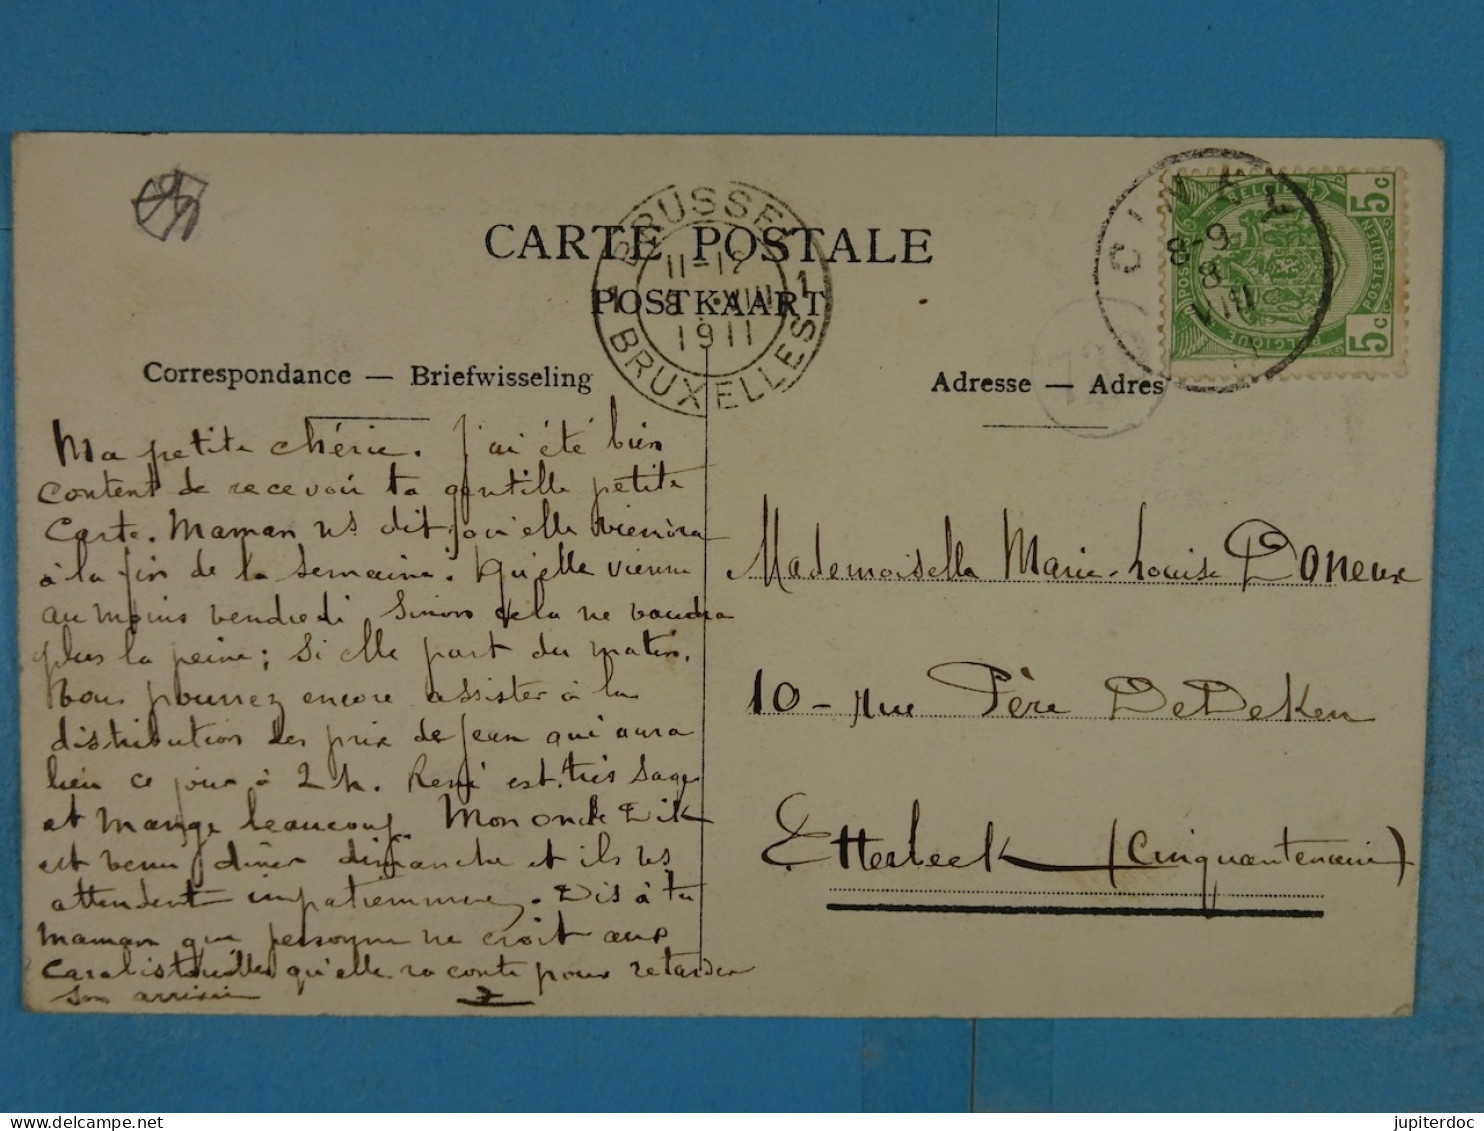 CARTE POSTALE
POSTKAART
BRUSSEL 1
11-12
8 VIII
1911
1 BRUXELLES
CINEY
8-9
8
VIII
5c
5c
BELGIQUE
POSTERIJEN
Correspondance — Briefwisseling
Adresse — Adres
Ma petite chérie. J'ai été bien
content de recevoir ta gentille petite
carte. Maman dit qu'elle viendra
à la fin de la semaine. Qu'elle vienne
au moins vendredi sinon cela ne vaudra
plus la peine; si elle part du matin,
vous pourrez encore assister à la
distribution des prix de Jean qui aura
lieu ce jour à 2 h. René est très sage
et mange beaucoup. Mon oncle Dik
est venu dîner dimanche et ils vs
attendent impatiemment. Dis à ta
maman que personne ne croit aux
carabistouilles qu'elle raconte pour retarder
son arrivée
Mademoiselle Marie-Louise Doneux
10 - rue Père DeDeKen
Etterbeek (Cinquantenaire)
jupiterdoc
delcampe.net